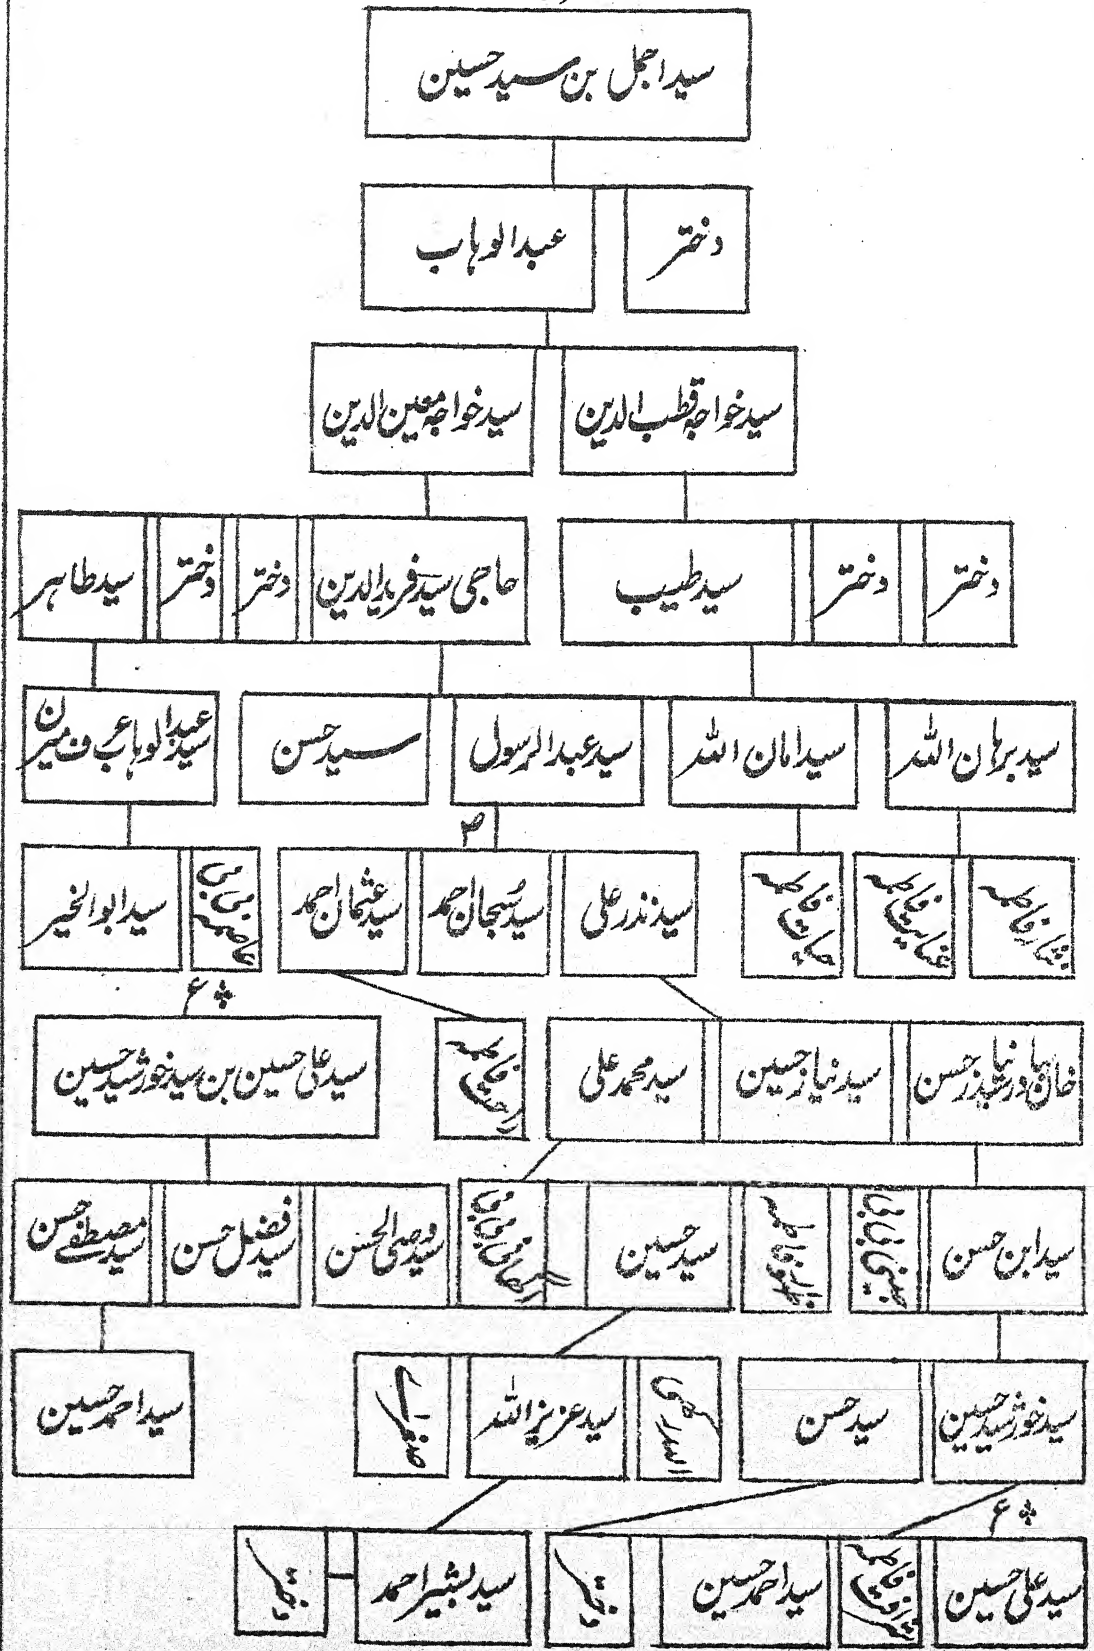 سید اجمل بن سید حسین
دختر
عبدالوہاب
سید خواجہ قطب الدین
سید خواجہ معین الدین
دختر
دختر
سید طیب
حاجی سید فرید الدین
دختر
دختر
سید طاہر
سید برہان اللہ
سید امان اللہ
سید عبدالرسول
سید حسن
سید عبدالوہاب عرف میرن
ص
نثار فاطمہ
عنایت فاطمہ
حیات فاطمہ
سید نذر علی
سید سُبحان احمد
سید عثمان احمد
بی بی
سید ابو الخیر
ع
خان بہادر سید نیاز حسن
سید نیاز حسین
سید محمد علی
راحت فاطمہ
سید علی حسین بن سید خورشید حسین
سید ابن حسن
بی بی
فاطمہ
سید حسین
بی بی
سید وصی الحسن
سید فضل حسن
سید مصطفے حسن
سید خورشید حسین
سید حسن
سید عزیز اللہ
سید احمد حسین
ع
سید علی حسین
شرافت فاطمہ
سید احمد حسین
دختر
سید بشیر احمد
دختر